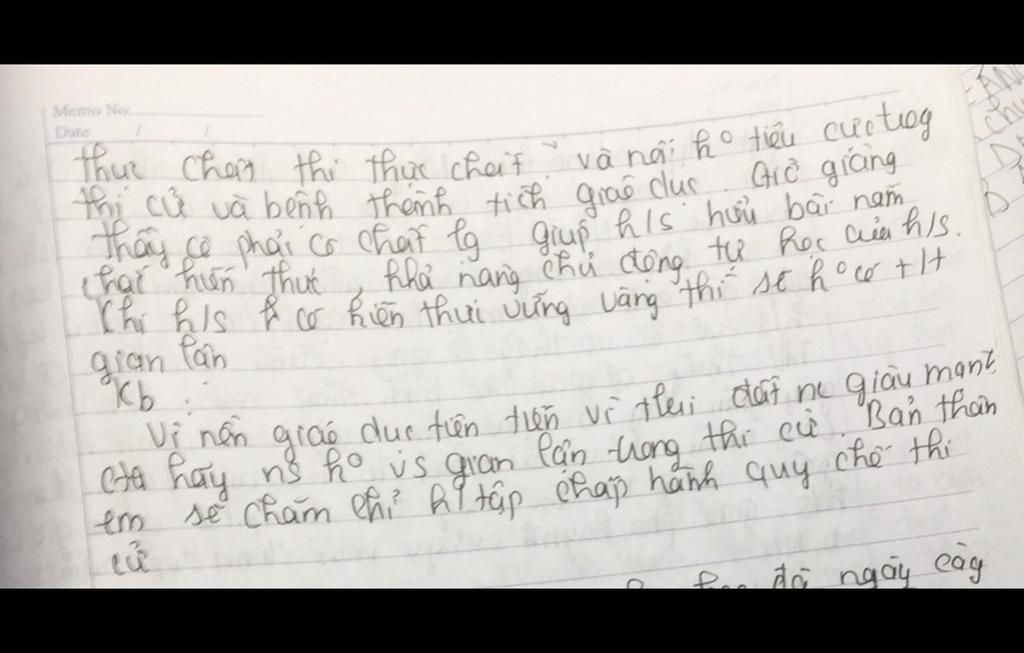 Memo No.
Date / /
thực chất thi thực chất" và nói ko tiêu cực trog
thi cử và bệnh thành tích giáo dục. Giờ giảng
thầy cô phải có chất lg giúp h/s hiểu bài nắm
chắc kiến thức, khả năng chủ động tự học của h/s.
Khi h/s có kiến thức vững vàng thì sẽ ko có
gian lận
Kb :
Vì nền giáo dục tiên tiến vì đất nc giàu mạnh
hãy ns ko vs gian lận trong thi cử. Bản thân
em sẽ chăm chỉ h/tập chấp hành quy chế thi
cử
đã ngày càg